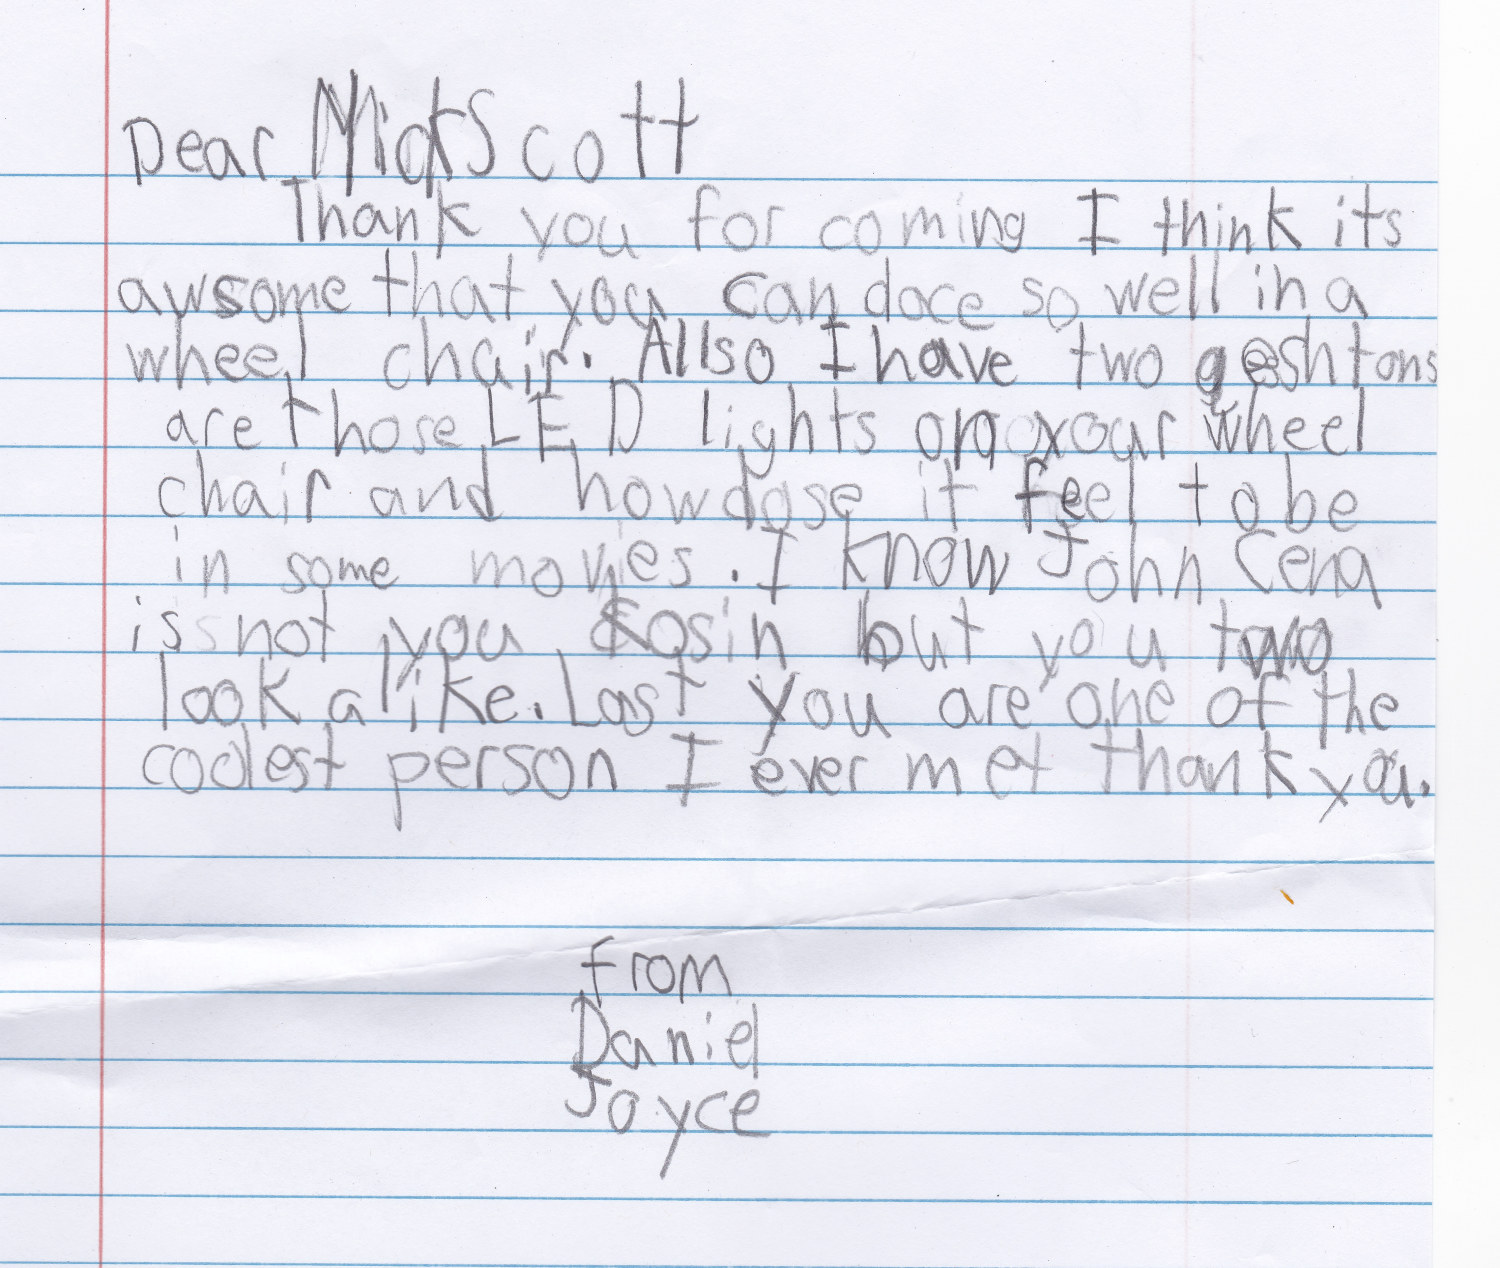 Dear Nick Scott
Thank you for coming I think its
awsome that you can dace so well in a
wheel chair. Allso I have two qeshtons
are those LED lights on your wheel
chair and how dose it feel to be
in some movies. I know John Cena
is not you cosin but you two
look alike. Last you are one of the
coolest person I ever met thank you.
from
Daniel
Joyce